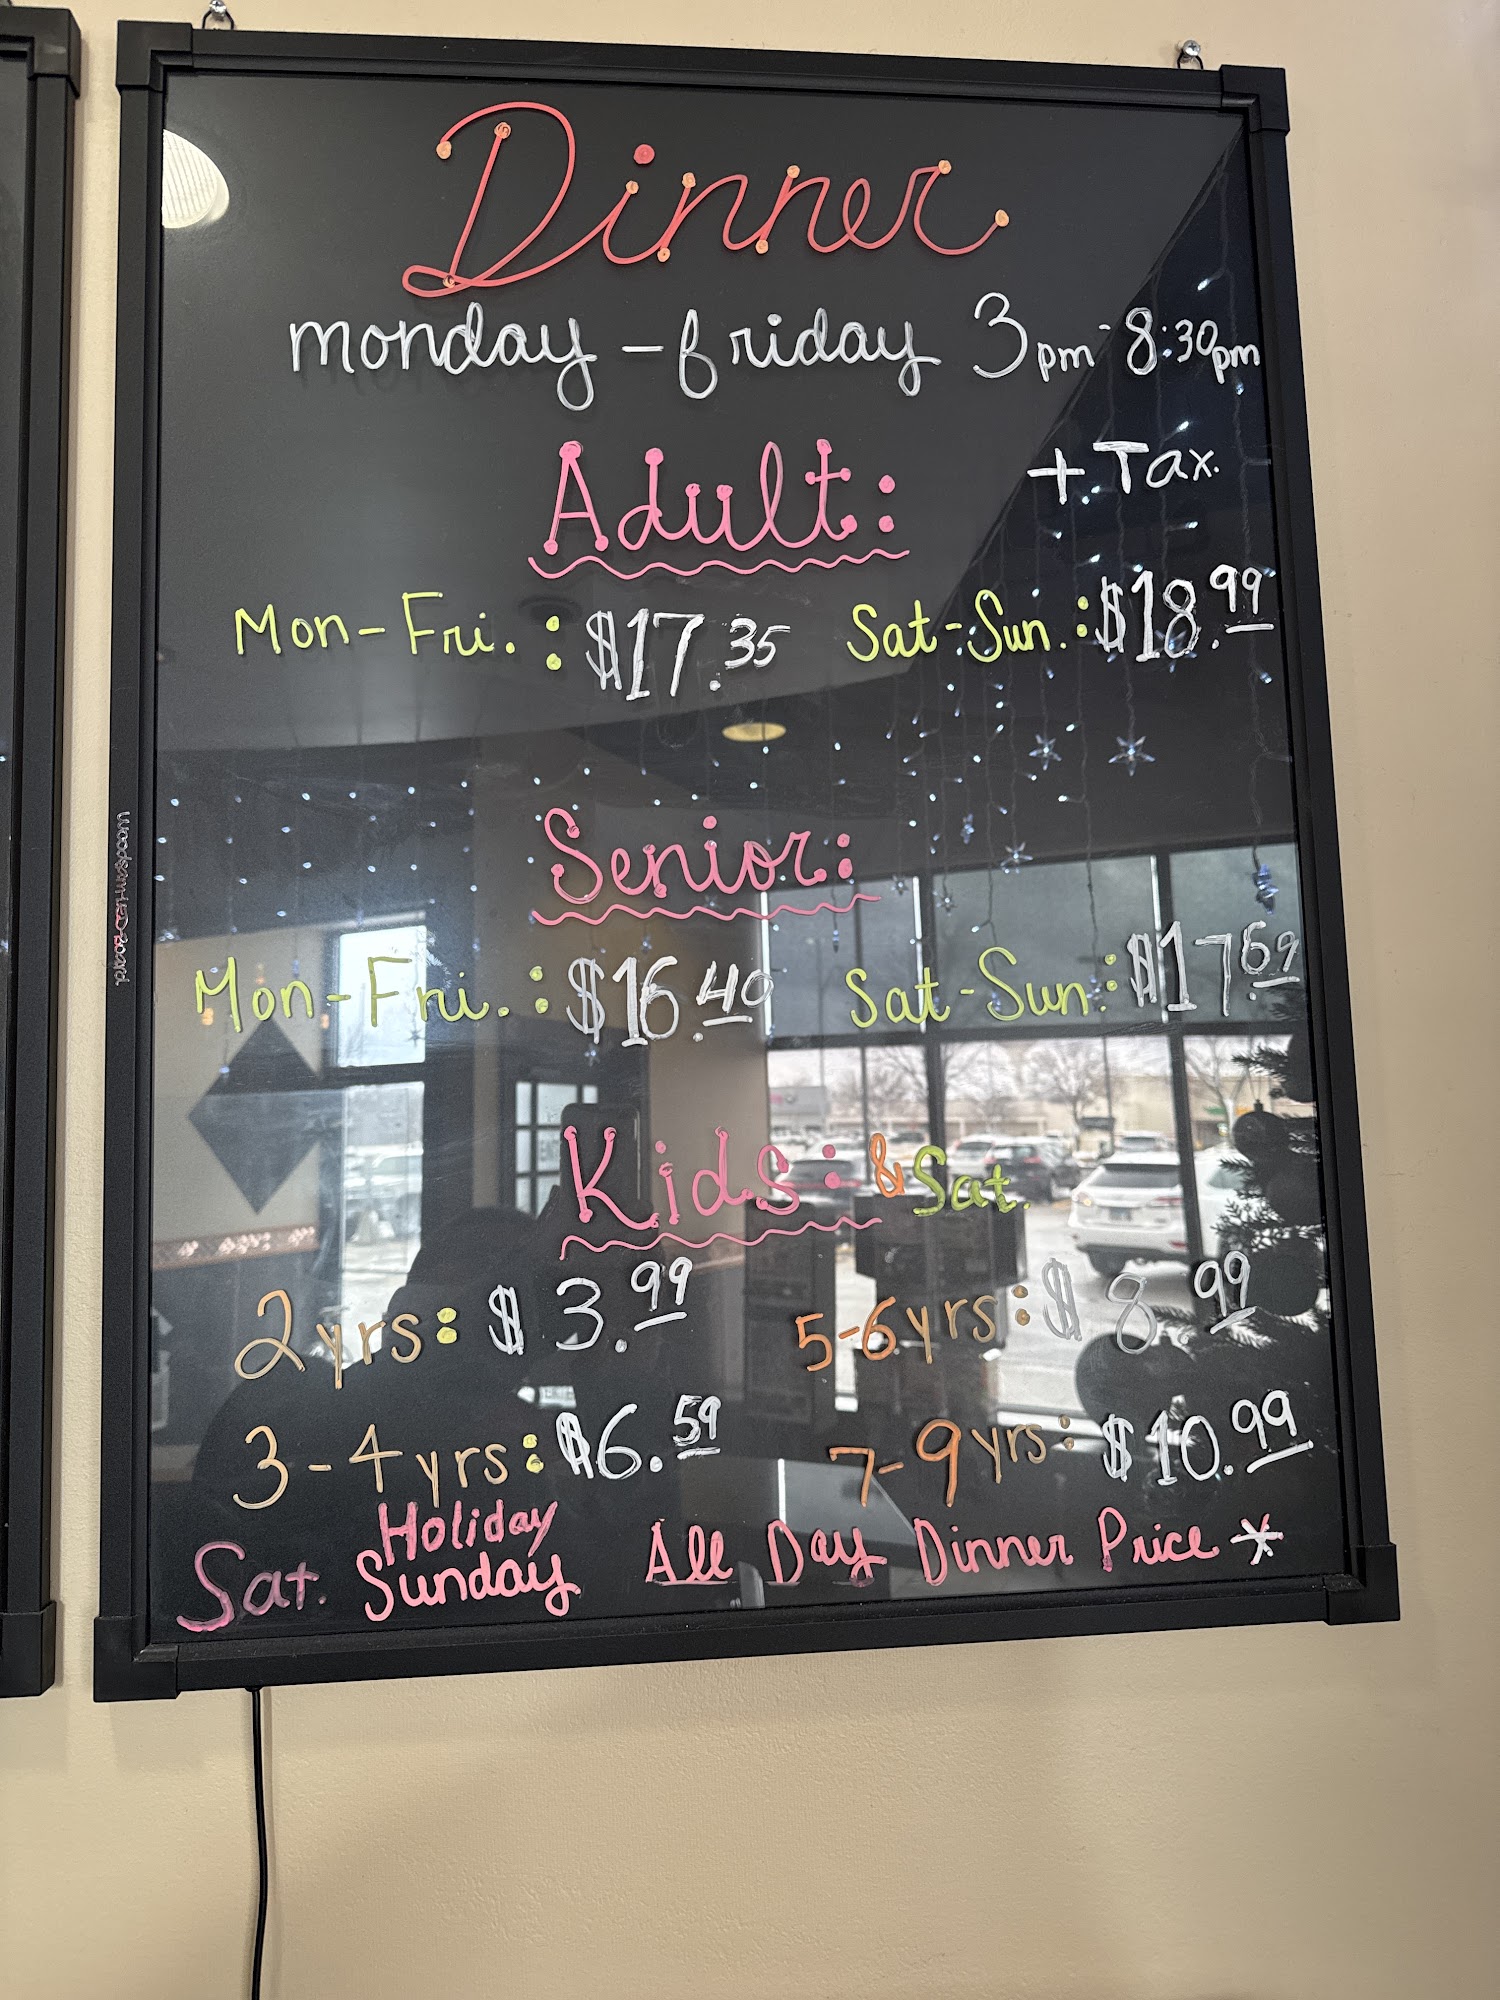 Dinner
monday - friday 3pm - 8:30pm
+ Tax.
Adult:
Mon-Fri. : $17.35 Sat-Sun. : $18.99
Senior:
Mon-Fri. : $16.40 Sat-Sun: $17.69
Kids: & Sat.
2yrs: $3.99 5-6yrs: $8.99
3-4yrs: $6.59 7-9yrs: $10.99
Holiday
Sat. Sunday All Day Dinner Price *
Woodsam LED Board